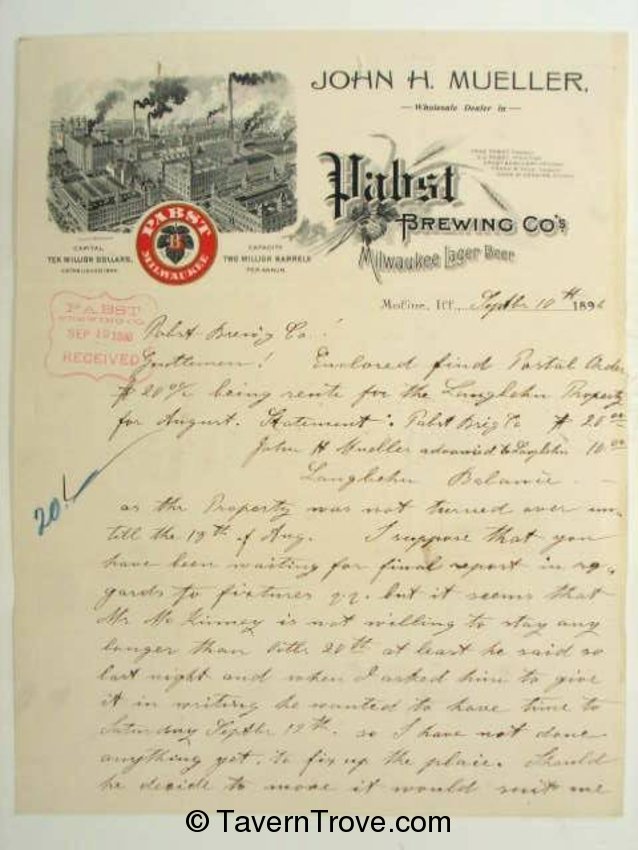 JOHN H. MUELLER,
Wholesale Dealer in
Pabst
BREWING CO'S
Milwaukee Lager Beer
CAPITAL
TEN MILLION DOLLARS.
ESTABLISHED 1844
PABST
B
MILWAUKEE
CAPACITY
TWO MILLION BARRELS
PER ANNUM.
Moline, Ill., Septbr 10th 1896
PABST
BREWING CO
SEP 1896
RECEIVED
Pabst Brewg Co!
Gentlemen! Enclosed find Postal Order
$20 being rente for the Langbehn Property
for August. Statement: Pabst Brg Co $ 20.00
John H Mueller advanced to Langbehn 10.00
Langbehn Balance
20.
as the Property was not turned over un-
till the 18th of Aug. I suppose that you
have been waiting for final report in re-
gards to fixtures but it seems that
Mr Mc Kinney is not willing to stay any
longer than 20th at least he said so
last night and when I asked him to give
it in writing he wanted to have time to
Saturday Septbr 12th. so I have not done
anything yet. to fix up the place. Should
he decide to move it would suit me
© TavernTrove.com